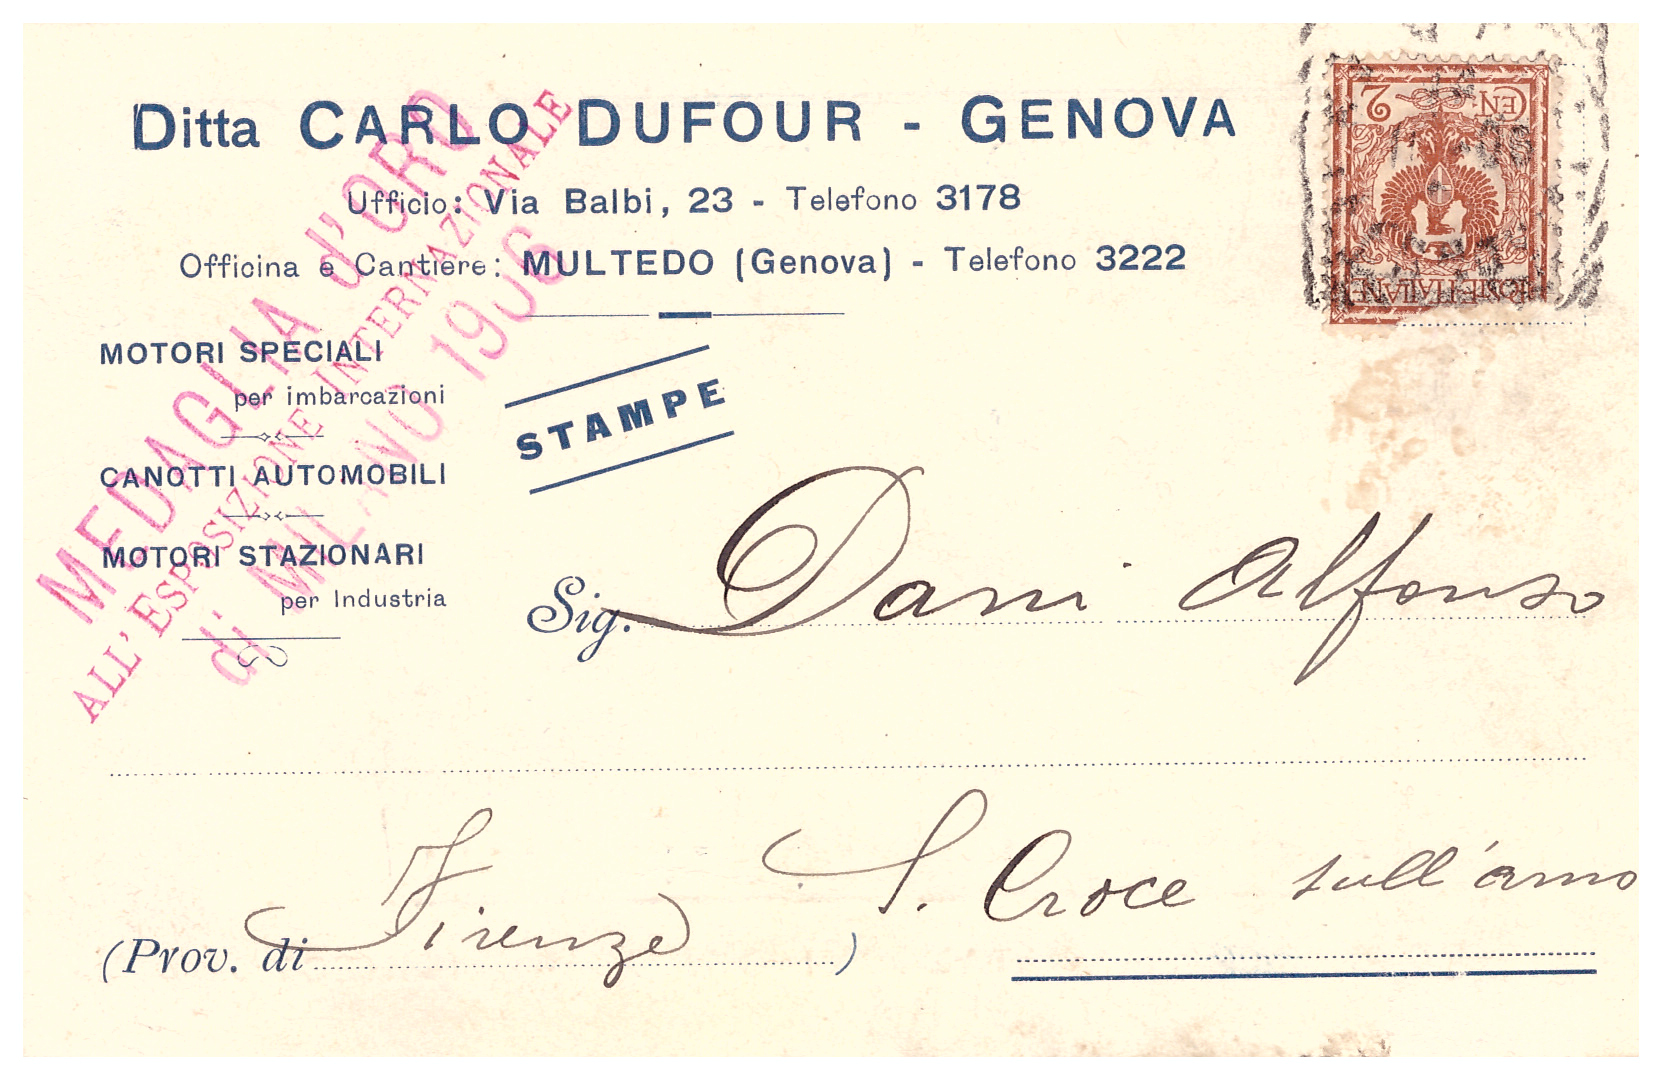 Ditta CARLO DUFOUR - GENOVA
Ufficio: Via Balbi, 23 - Telefono 3178
Officina e Cantiere: MULTEDO (Genova) - Telefono 3222
MEDAGLIA d'ORO
ALL'ESPOSIZIONE INTERNAZIONALE
di MILANO 1906
CEN. 2
POSTE ITALIANE
MOTORI SPECIALI
per imbarcazioni
CANOTTI AUTOMOBILI
MOTORI STAZIONARI
per Industria
STAMPE
Sig. Dani Alfonso
S. Croce sull'arno
(Prov. di Firenze)